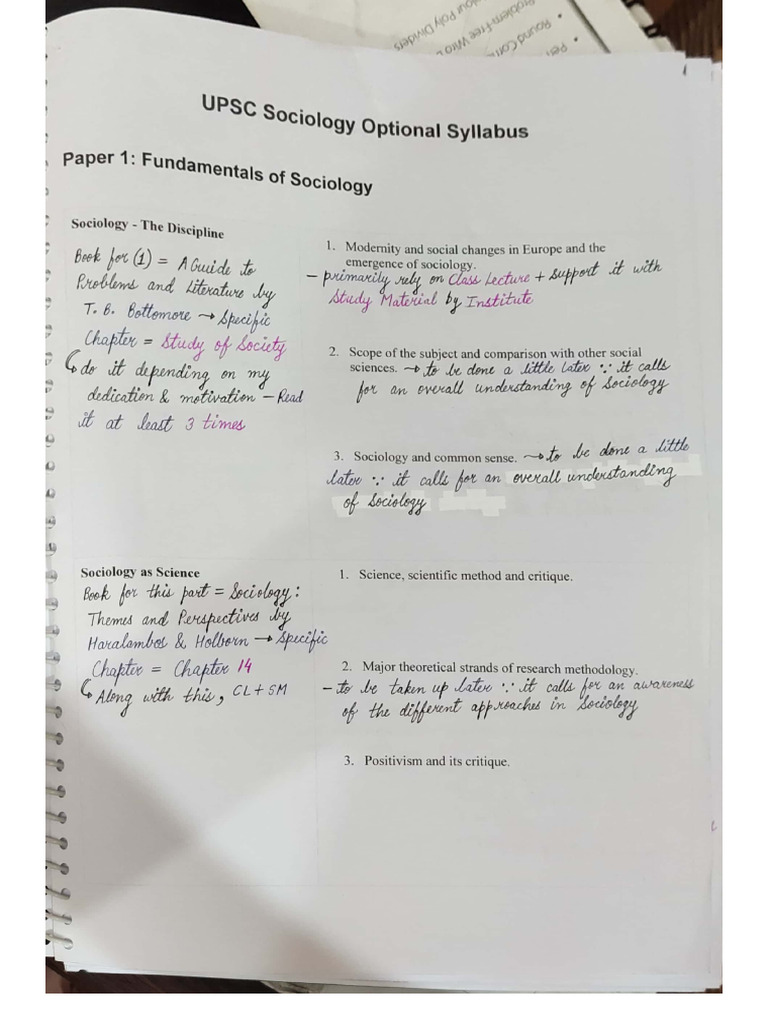 our Poly Dividers
Problem-Free Wiro
Round Cor
Per
UPSC Sociology Optional Syllabus
Paper 1: Fundamentals of Sociology
Sociology - The Discipline
Book for (1) = A Guide to
Problems and Literature by
T. B. Bottomore → Specific
Chapter = Study of Society
↳ do it depending on my
dedication & motivation – Read
it at least 3 times
1. Modernity and social changes in Europe and the
emergence of sociology.
– primarily rely on Class Lecture + support it with
Study Material by Institute
2. Scope of the subject and comparison with other social
sciences. → to be done a little later ∵ it calls
for an overall understanding of Sociology
3. Sociology and common sense. → to be done a little
later ∵ it calls for an overall understanding
of Sociology
Sociology as Science
Book for this part = Sociology:
Themes and Perspectives by
Haralambos & Holborn → Specific
Chapter = Chapter 14
↳ Along with this, CL + SM
1. Science, scientific method and critique.
2. Major theoretical strands of research methodology.
– to be taken up later ∵ it calls for an awareness
of the different approaches in Sociology
3. Positivism and its critique.